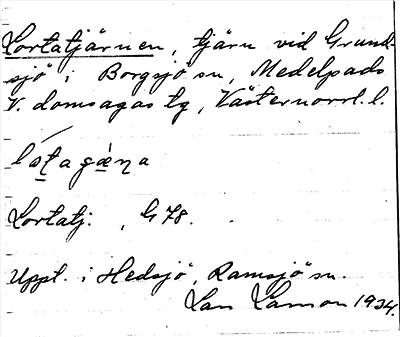 Lortatjärnen, tjärn vid Grund-
sjö i Borgsjö sn, Medelpads
V. domsagas tg, Västernorrl. l.
lo̱ṯagǽṉa
Lortatj. , G 78.
Uppt. i Hedsjö, Ramsjö sn.
Lars Larsson 1934.